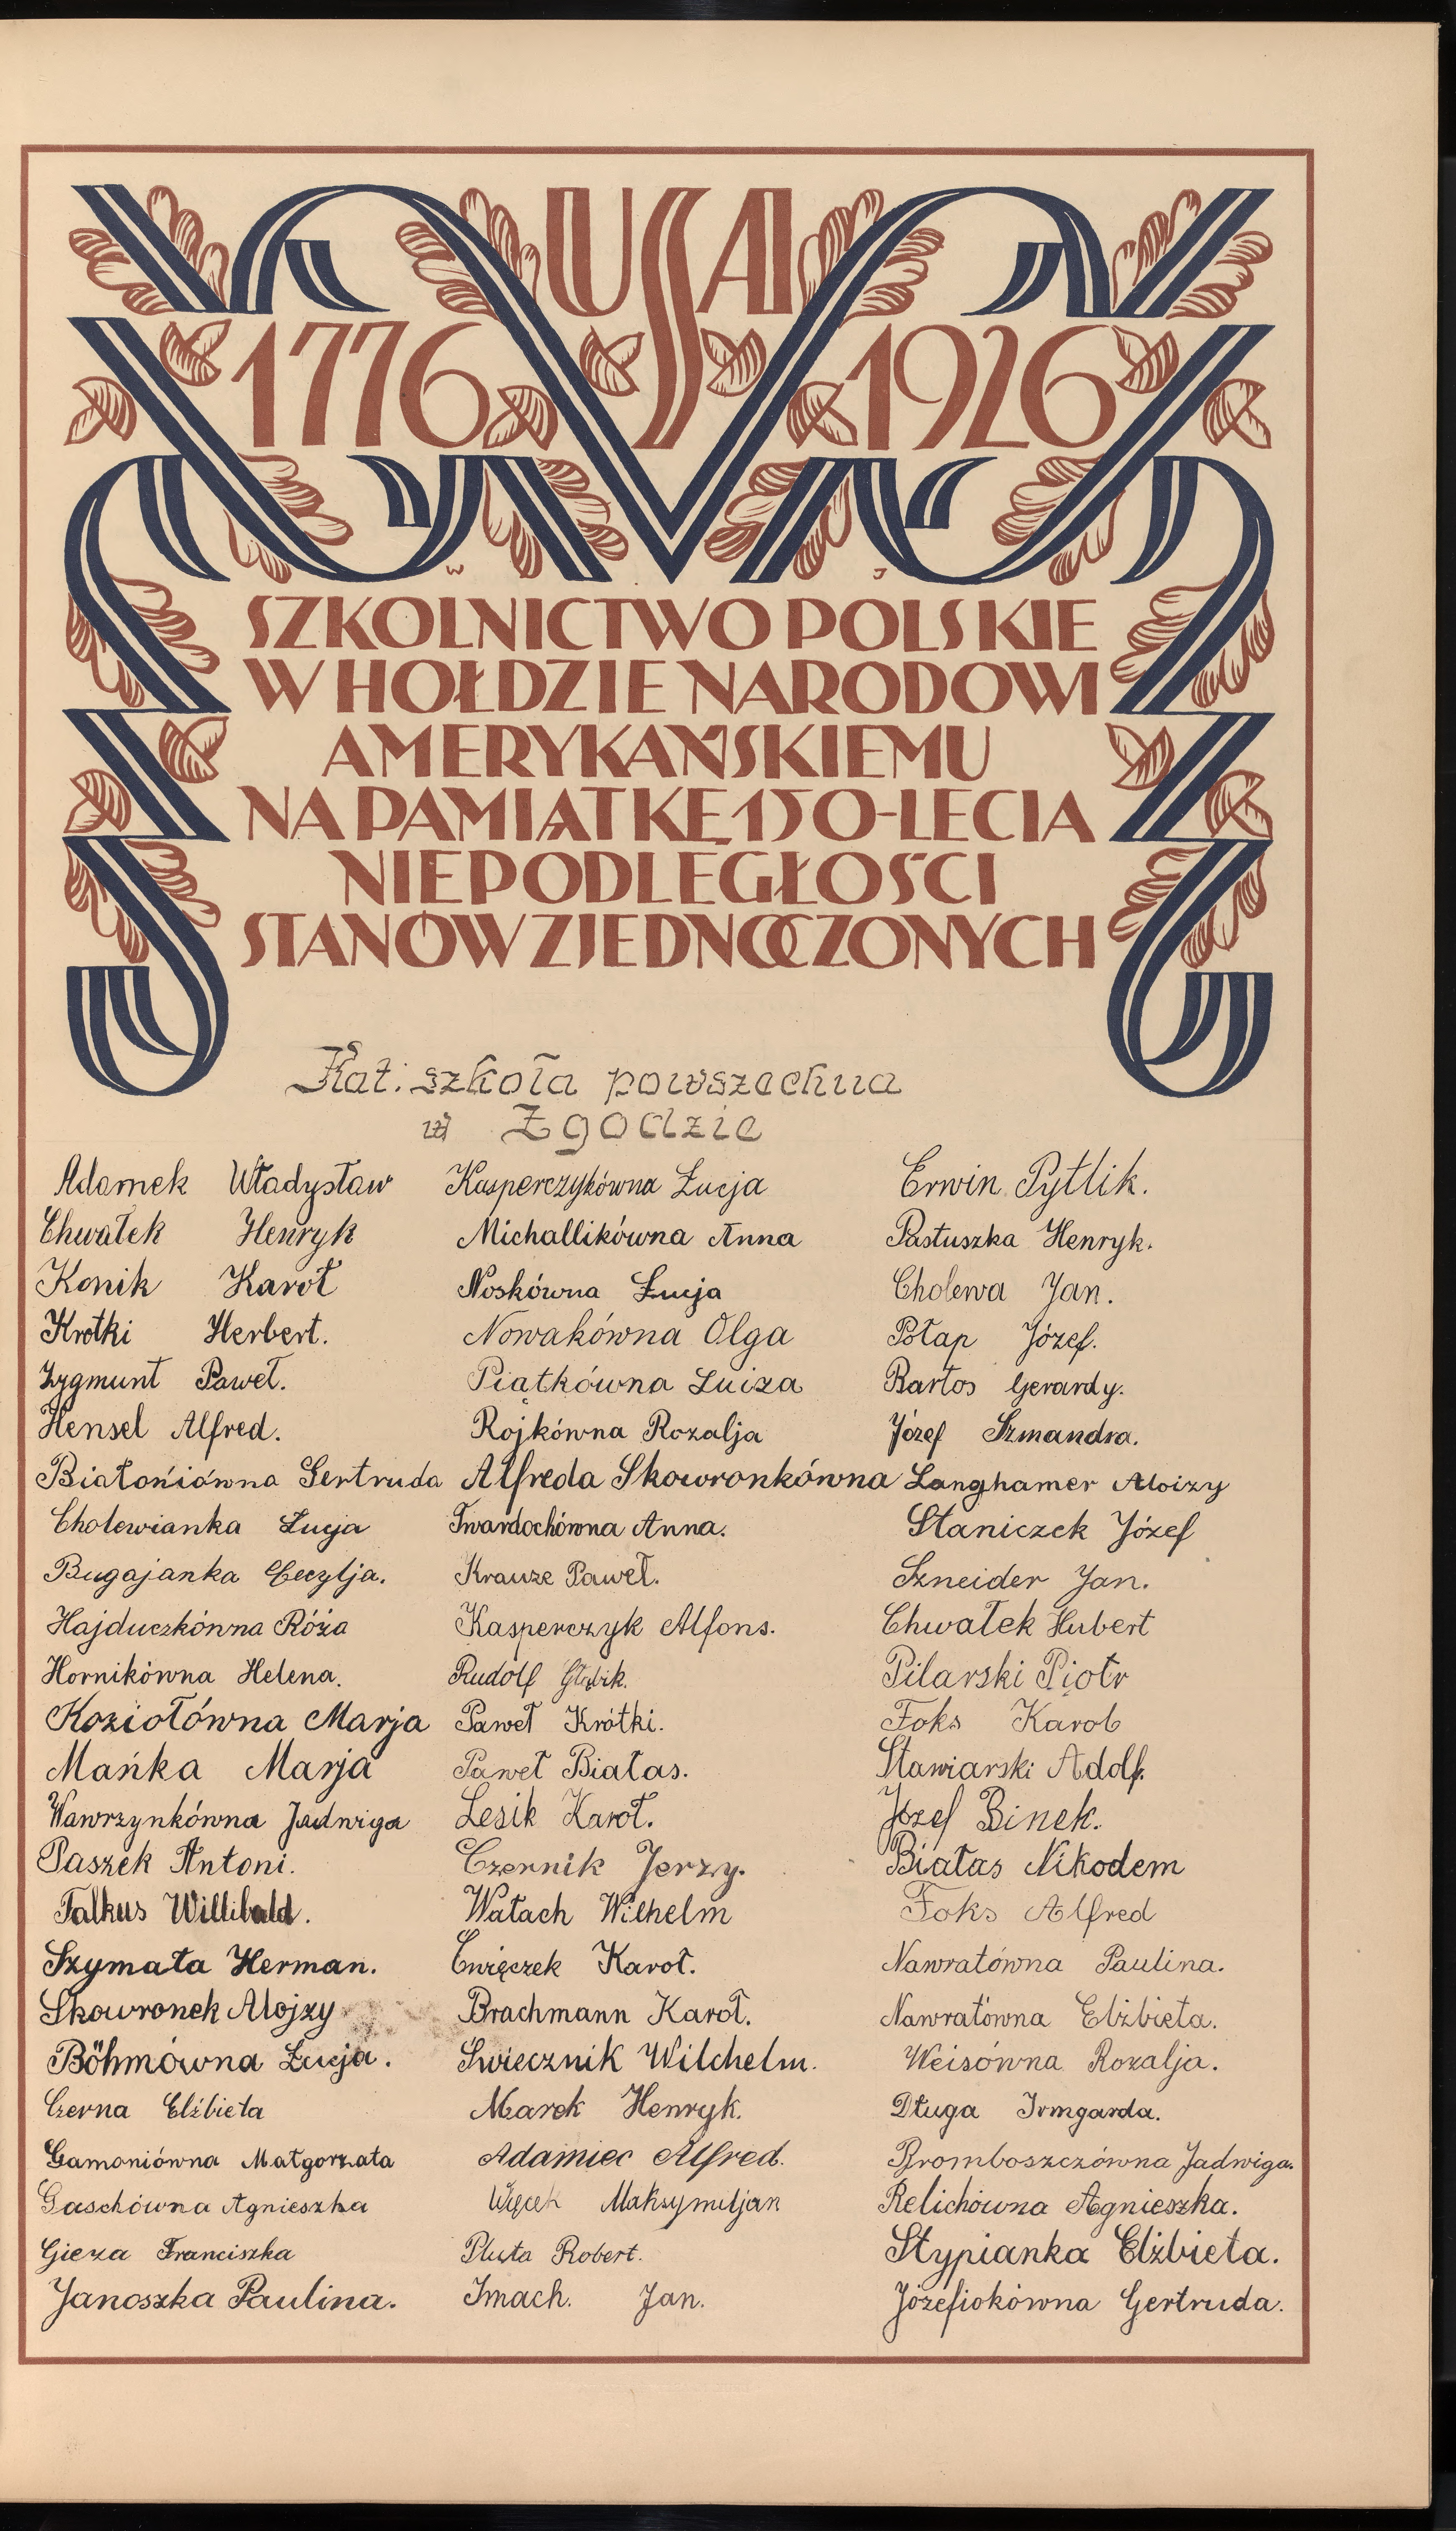 USA
1776 1926
W J
SZKOLNICTWO POLSKIE
W HOŁDZIE NARODOWI
AMERYKAŃSKIEMU
NA PAMIĄTKĘ 150-LECIA
NIEPODLEGŁOŚCI
STANÓW ZJEDNOCZONYCH
Kat. szkoła powszechna
w Zgodzie
Adamek Władysław
Chwałek Henryk
Konik Karol
Krótki Herbert.
Zygmunt Paweł.
Hensel Alfred.
Białońiówna Gertruda
Cholewianka Łucja
Bugajanka Cecylja.
Hajduczkówna Róża
Hornikówna Helena.
Koziołówna Marja
Mańka Marja
Wawrzynkówna Jadwiga
Paszek Antoni.
Falkus Willibald.
Szymała Herman.
Skowronek Alojzy
Böhmówna Łucja.
Czerna Elżbieta
Gamoniówna Małgorzata
Gaschówna Agnieszka
Gieza Franciszka
Janoszka Paulina.
Kasperczykówna Łucja
Michallikówna Anna
Noskówna Łucja
Nowakówna Olga
Piątkówna Luiza
Rojkówna Rozalja
Alfreda Skowronkówna
Twardochówna Anna.
Krauze Paweł.
Kasperczyk Alfons.
Rudolf
Paweł Krótki.
Paweł Białas.
Lesik Karol.
Czernik Jerzy.
Wałach Wilhelm
Ćwięczek Karol.
Brachmann Karol.
Świecznik Wilchelm.
Marek Henryk.
Adamiec Alfred.
Więcek Maksymiljan
Pluta Robert.
Imach. Jan.
Erwin Pytlik.
Pastuszka Henryk.
Cholewa Jan.
Połap Józef.
Bartos Gerardy.
Józef Szmandra.
Langhamer Aloizy
Staniczek Józef
Szneider Jan.
Chwałek Hubert
Pilarski Piotr
Foks Karol
Stawiarski Adolf.
Józef Binek.
Białas Nikodem
Foks Alfred
Nawratówna Paulina.
Nawratówna Elżbieta.
Weisówna Rozalja.
Długa Irmgarda.
Bromboszczówna Jadwiga.
Relichówna Agnieszka.
Stypianka Elżbieta.
Józefiokówna Gertruda.